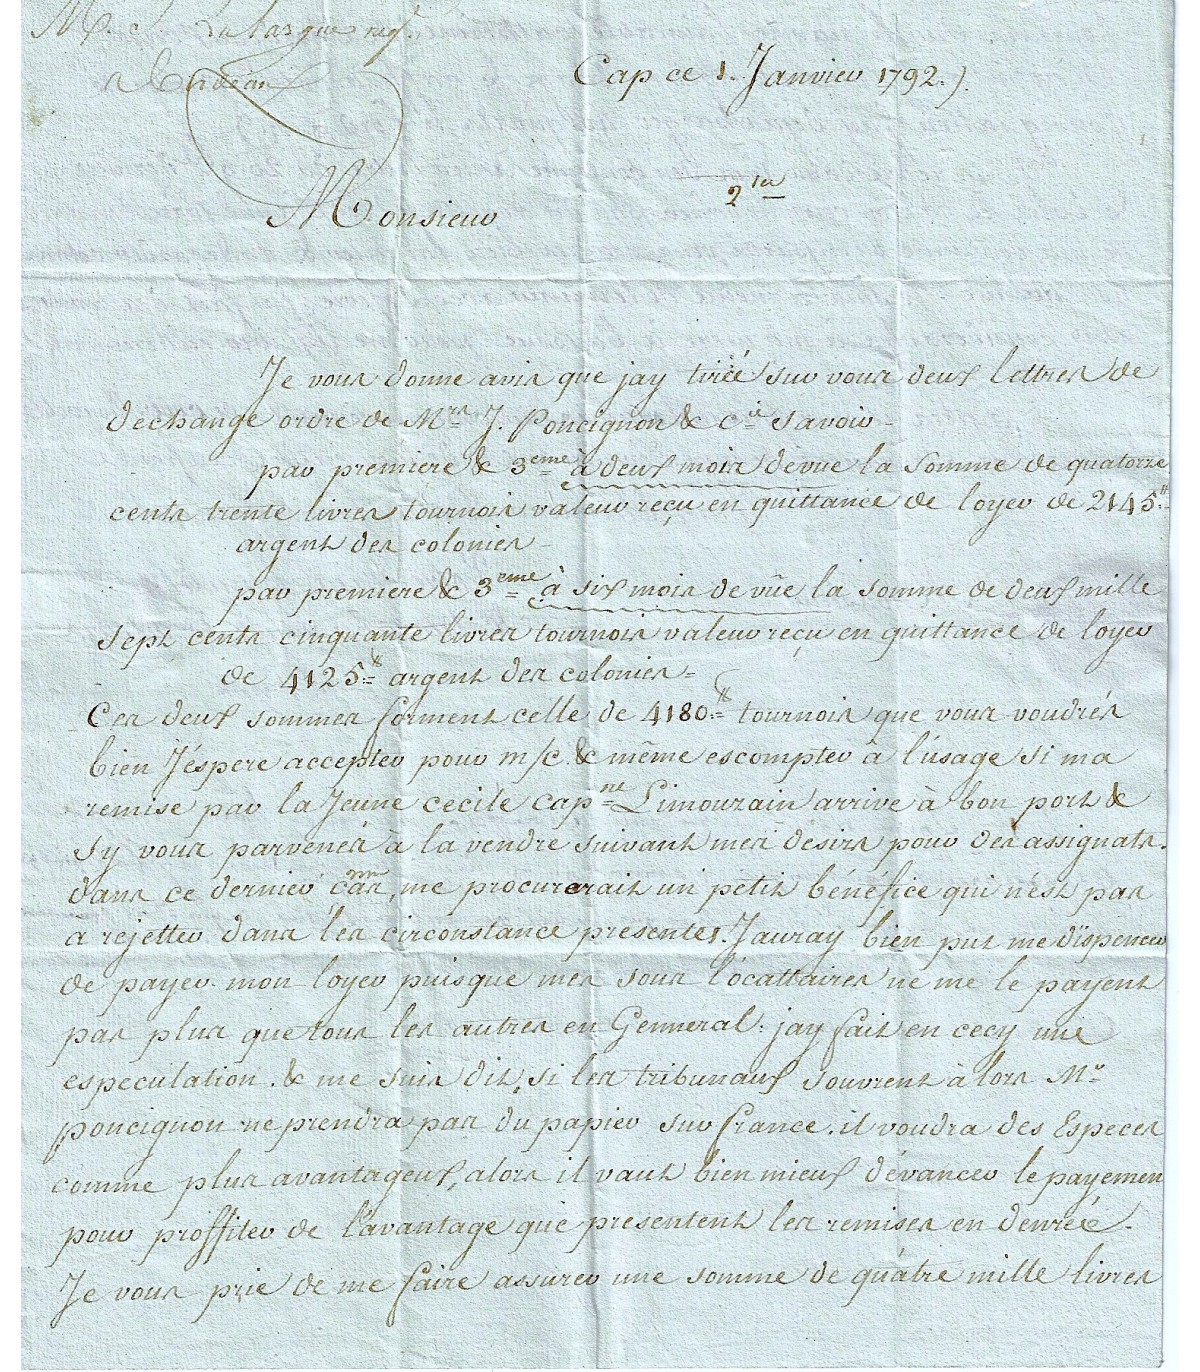 M. Lalasgue neg.t
a Bordeaux
Cap ce 1. Janvier 1792.)
2 1er
Monsieur
Je vous donne avis que jay tiréé sur vous deux lettres de
dechange ordre de Mrs J. Poncignon & Cie savoir
par premiere & 3eme à deux mois de vue la somme de quatorze
cents trente livres tournois valeur reçu en quittance de loyer de 2145#
argent des colonies
par premiere & 3eme à six mois de vûe la somme de deux mille
sept cents cinquante livres tournois valeur reçu en quittance de loyer
de 4125# argent des colonies
Ces deux sommes forment celle de 4180# tournois que vous voudrés
bien J'éspere accepter pour m/c & même escompter â l'usage si ma
remise par la Jeune cecile capne Limouzain arrive à bon port &
sy vous parvenés à la vendre suivant mes desirs pour des assignats.
dans ce dernier cas, me procurerait un petit bénéfice qui n'est pas
à rejetter dans les circonstance presentes. Jauray bien put me dispencer
de payer mon loyer puisque mes sous locattaires ne me le payent
pas plus que tous les autres en Genneral: jay fait en cecy une
especulation. & me suis dit, si les tribunaux souvrent à lors Mr
poncignon ne prendra pas du papier sur france. il voudra des Especes
comme plus avantageux, alors il vaut bien mieux dévancer le payemen
pour proffiter de l'avantage que presentent les remises en denréé.
Je vous prie de me faire assurer une somme de quatre mille livres